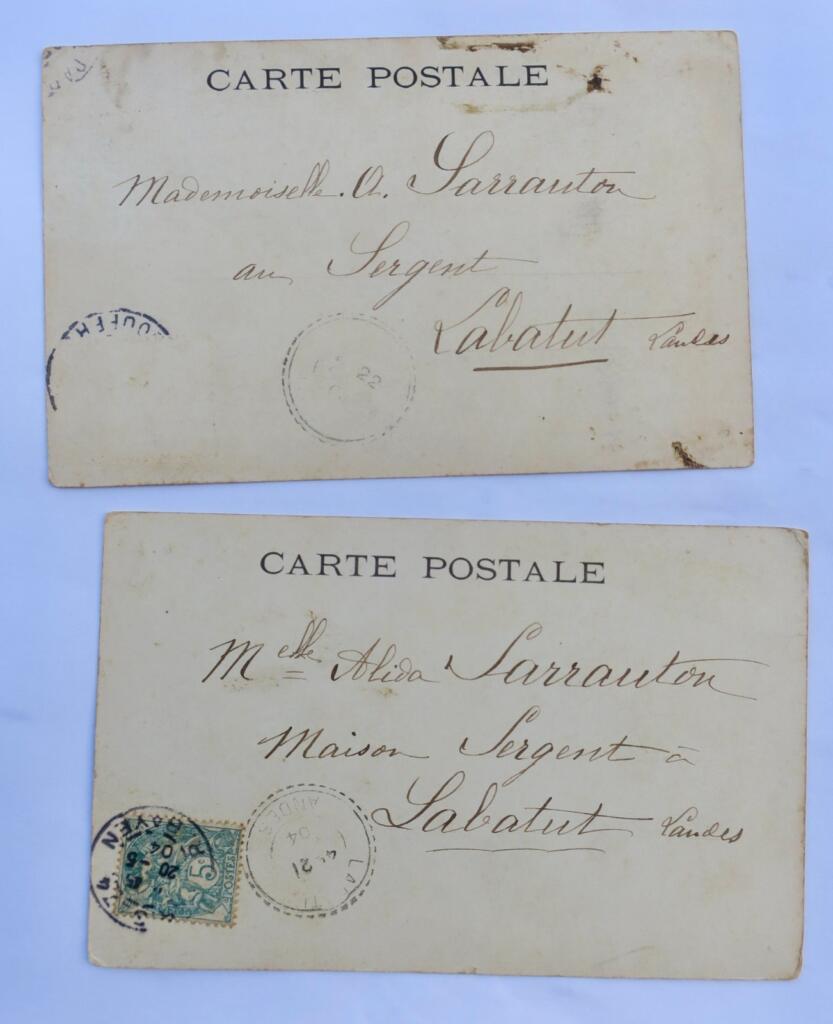 CARTE POSTALE
Mademoiselle. A. Sarrauton
au Sergent
Labatut Landes
OUFFH
22
CARTE POSTALE
Melle Alida Sarrauton
Maison Sergent à
Labatut Landes
ANDES
04
21
BAYEN
04
20 -5
5c
POSTES